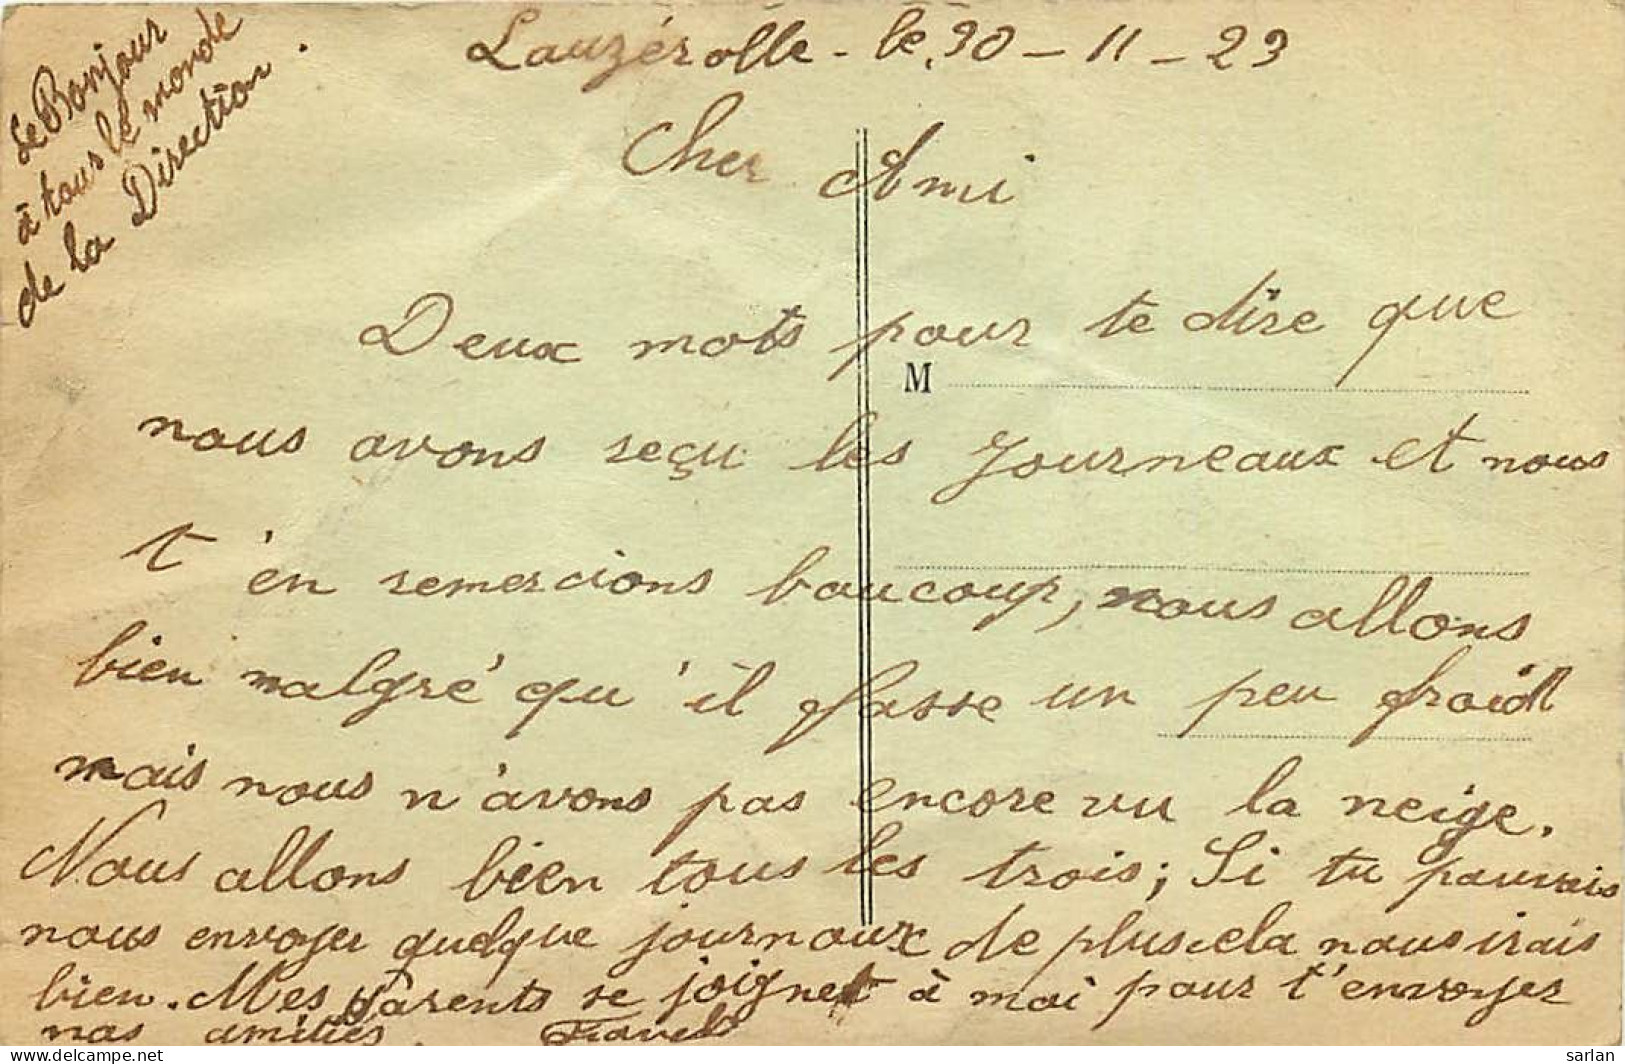 Le Bonjour
à tous le monde
de la Direction.
Lauzérolle - le, 30 - 11 - 29
Cher Ami
Deux mots pour te dire que
M
nous avons reçu les Journeaux et nous
t'en remercions baucoup, nous allons
bien malgré qu'il fasse un peu froid
mais nous n'avons pas encore vu la neige.
Nous allons bien tous les trois; Si tu pouvais
nous envoyer quelque journaux de plus cela nous irais
bien. Mes parents se joignet à moi pour t'envoyer
nos amitiés.
sarlan
delcampe.net